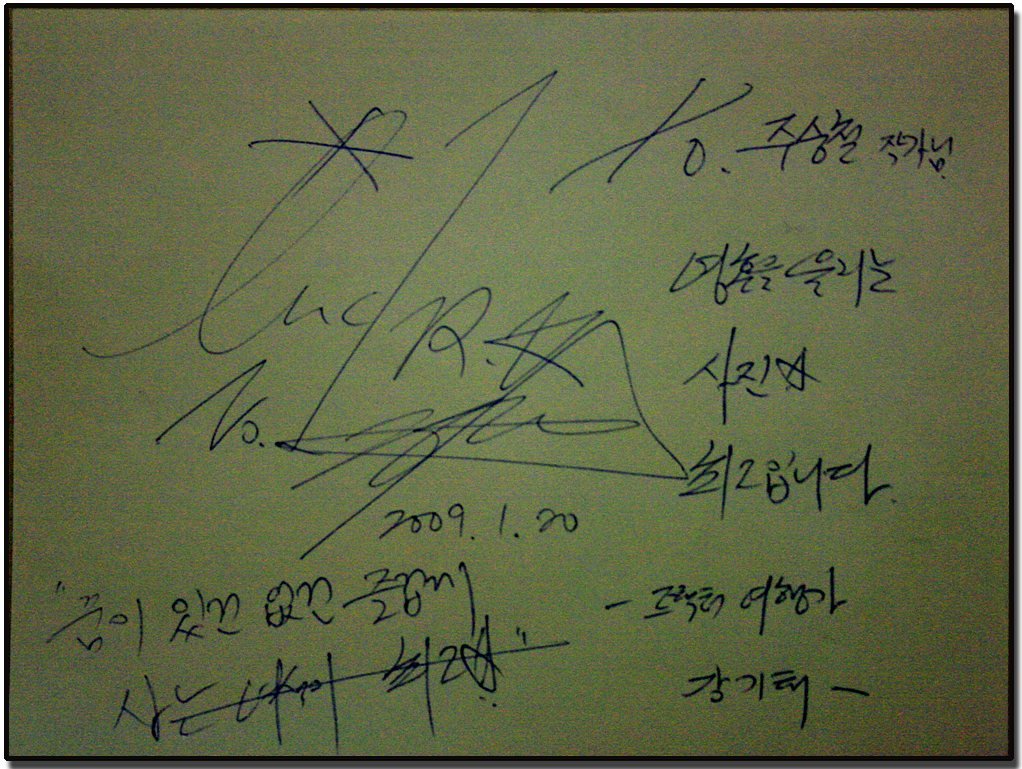 To. 주승철 작가님
영혼을 울리는
사진☆
최고입니다.
2009. 1. 20
"꿈이 있건 없건 즐겁게
사는 최고☆"
- 트랙터 여행가
강기태 -